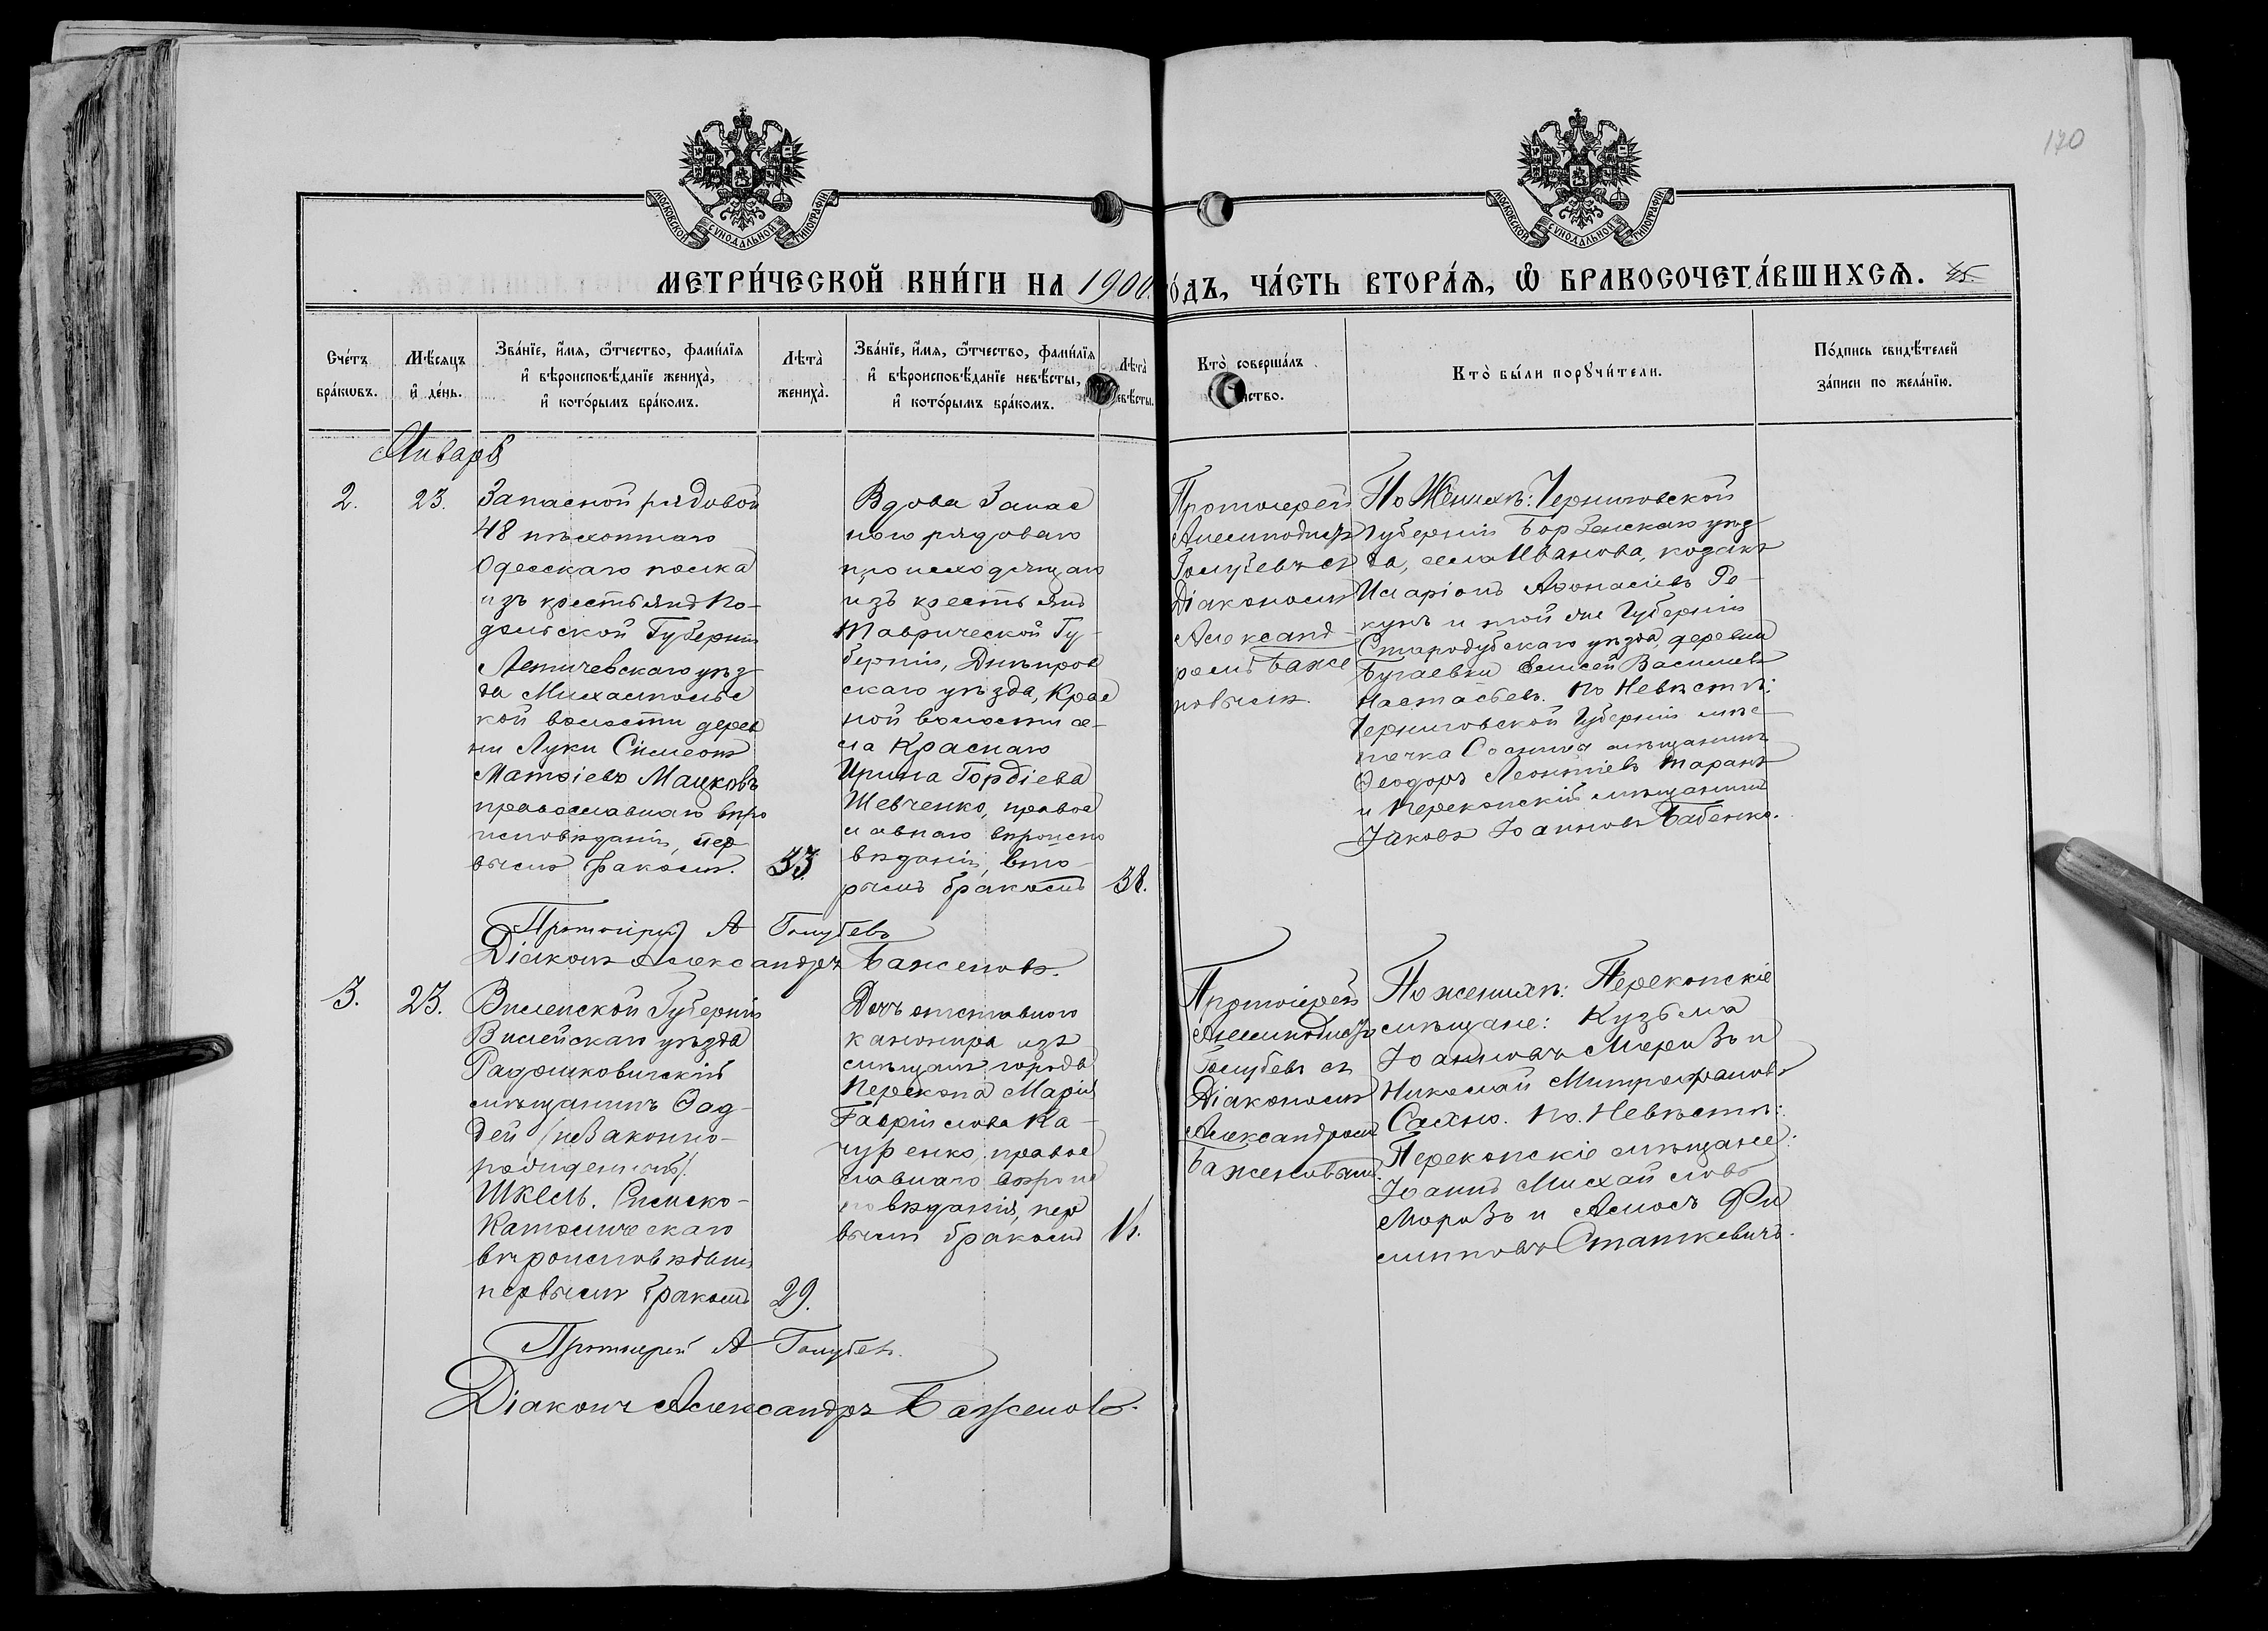 170
МОСКОВСКОЙ СѴНОДАЛЬНОЙ ТИПОГРАФІИ
МОСКОВСКОЙ СѴНОДАЛЬНОЙ ТИПОГРАФІИ
МЕТРИ́ЧЕСКОЙ КНИ́ГИ НА 1900 о́дъ, ЧА́СТЬ ВТОРА́Ѧ, Ѿ БРАКОСОЧЕТА́ВШИХСѦ. 45.
Сче́тъ бра́кѡвъ.
Мѣ́сяцъ и҆ де́нь.
Зва́нїе, и҆́мя, ѻ҆́тчество, фами́лїя и҆ вѣроисповѣ́данїе жениха̀, и҆ кото́рымъ бра́комъ.
Лѣта̀ жениха̀.
Зва́нїе, и҆́мя, ѻ҆́тчество, фами́лїя и҆ вѣроисповѣ́данїе невѣ́сты, и҆ кото́рымъ бра́комъ.
Лѣта̀ евѣ́сты.
Кто̀ соверша́лъ нство.
Кто̀ бы́ли порꙋчи́тели.
По́дпись свидѣ́телей за́писи по жела́нїю.
Январь
2.
23.
Запасной рядовой
48 пѣхотнаго
Одесскаго полка
изъ крестьянъ По-
дольской Губерніи
Летичевскаго уѣз-
да Михалпольс
кой волости дерев
ни Луки Симеонъ
Матѳіевъ Мацковъ
православнаго вѣро
исповѣданія, пер
вымъ бракомъ.
33.
Вдова Запас
ного рядоваго
происходящаго
изъ крестьянъ
Таврической Гу-
берніи, Днѣпров
скаго уѣзда, Крас
ной волости се-
ла Краснаго
Ирина Гордіева
Шевченко, правос
лавнаго вѣроиспо
вѣданія, вто-
рымъ бракомъ
38.
Протоіерей
Алимподистъ
Голубевъ съ
Діакономъ
Александ-
ромъ Баже
новымъ.
По Женихѣ: Черниговской
Губерніи Борзенскаго уѣз
да, села Иванова, козакъ
Иларіонъ Аѳонасіевъ Ро-
кунъ и той же Губерніи
Стародубскаго уѣзда, деревни
Бугаевки Елисей Васильевъ
Настасьевъ. По Невѣстѣ:
Черниговской Губерніи мѣс
течка мѣщанинъ
Ѳеодоръ Леонтіевъ Таранъ
и Перекопскій мѣщанинъ
Іаковъ Іоанновъ Бабенко.
Протоіерей А Голубевъ
Діаконъ Александръ Баженовъ.
3.
23.
Виленской Губерніи
Вилейскаго уѣзда
Радошковичскій
мѣщанинъ Ѳад-
дей (незаконно-
рожденный)
Шкель. Римско-
Католическаго
вѣроисповѣданія
первымъ бракомъ
29.
Дочь отставного
канонира изъ
мѣщанъ города
Перекопа Марія
Гавріилова Ка-
чуренко, правос
лавнаго вѣроис
повѣданія, пер
вымъ бракомъ
Протоіерей
Алимподистъ
Голубевъ съ
Діакономъ
Александромъ
Баженовымъ.
По женихѣ: Перекопскіе
мѣщане: Кузьма
Іоанновъ Морозъ и
Николай Митрофановъ
Сахно. По. Невѣстѣ:
Перекопскіе мѣщане:
Іоаннъ Михайловъ
Морозъ и Амосъ Фи
липповъ Статкевичъ.
Протоіерей А Голубевъ.
Діаконъ Александръ Баженовъ.